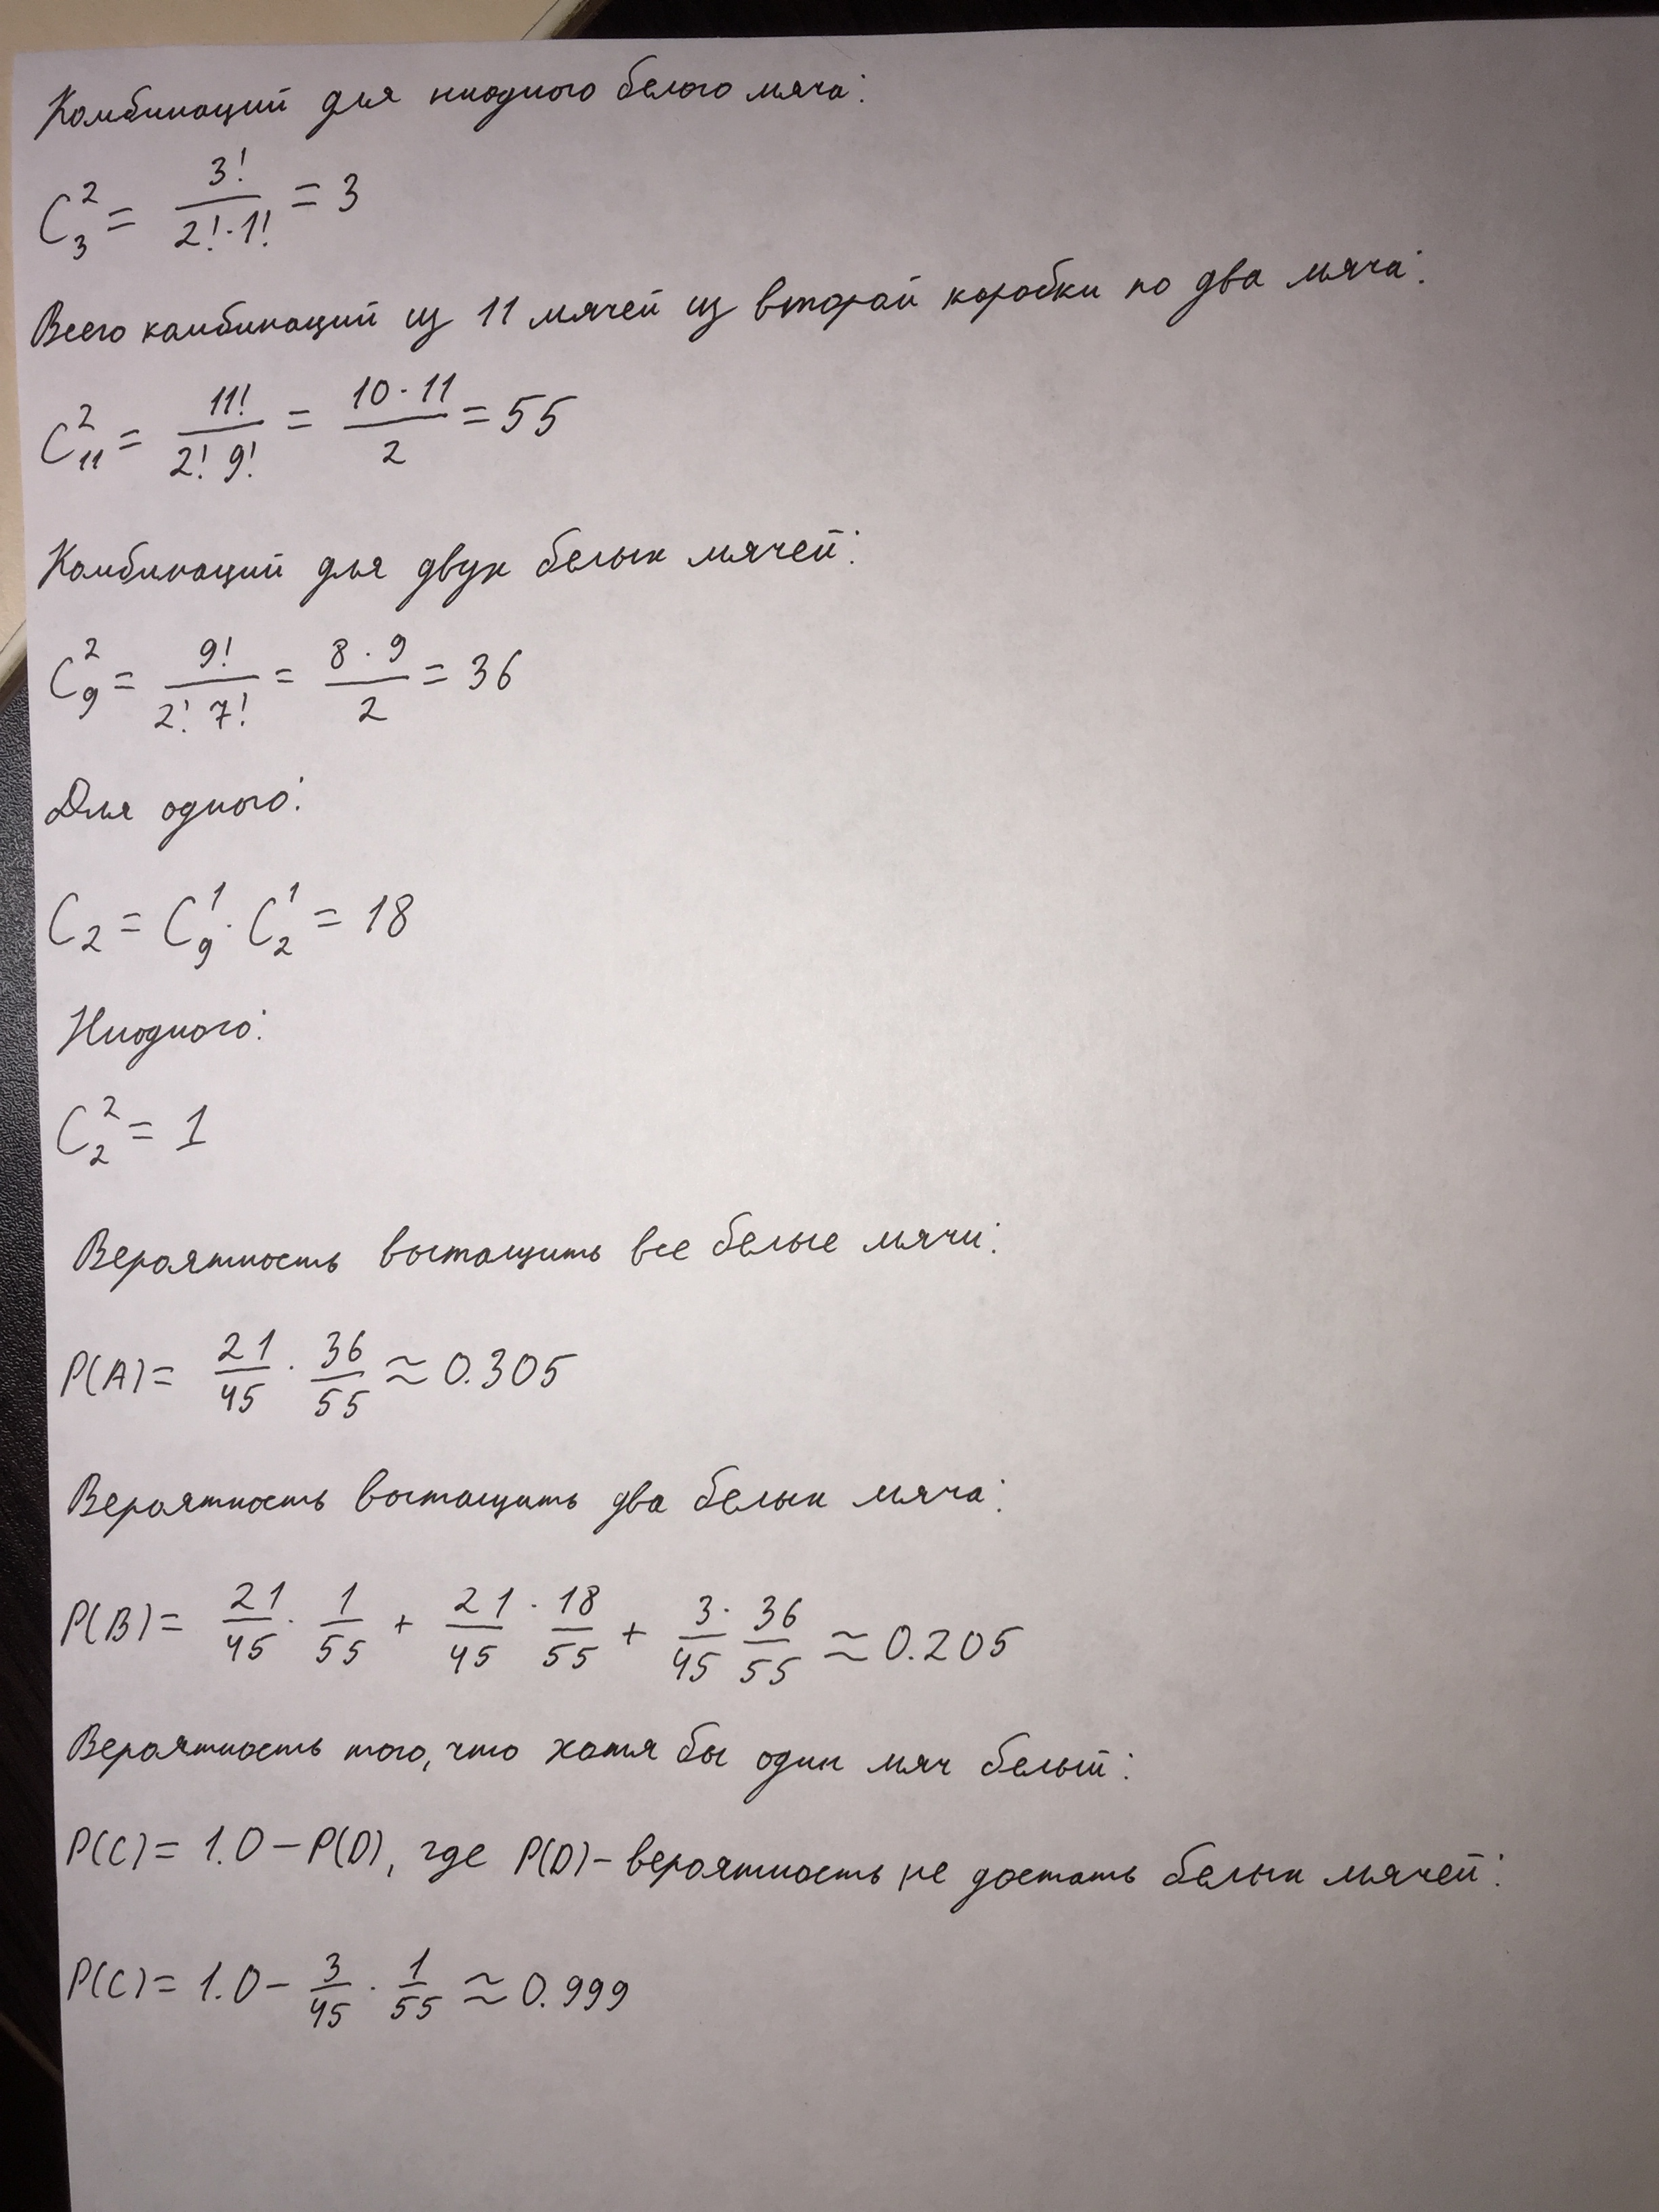 Комбинаций для ниодного белого мяча:
C₃² = 3! / (2!·1!) = 3
Всего комбинаций из 11 мячей из второй коробки по два мяча:
C₁₁² = 11! / (2! 9!) = (10·11) / 2 = 55
Комбинаций для двух белых мячей:
C₉² = 9! / (2! 7!) = (8·9) / 2 = 36
Для одного:
C₂ = C₉¹·C₂¹ = 18
Ниодного:
C₂² = 1
Вероятность вытащить все белые мячи:
P(A) = 21/45 · 36/55 ≈ 0.305
Вероятность вытащить два белых мяча:
P(B) = 21/45 · 1/55 + 21/45 · 18/55 + 3/45 · 36/55 ≈ 0.205
Вероятность того, что хотя бы один мяч белый:
P(C) = 1.0 − P(D), где P(D) – вероятность не достать белых мячей:
P(C) = 1.0 − 3/45 · 1/55 ≈ 0.999